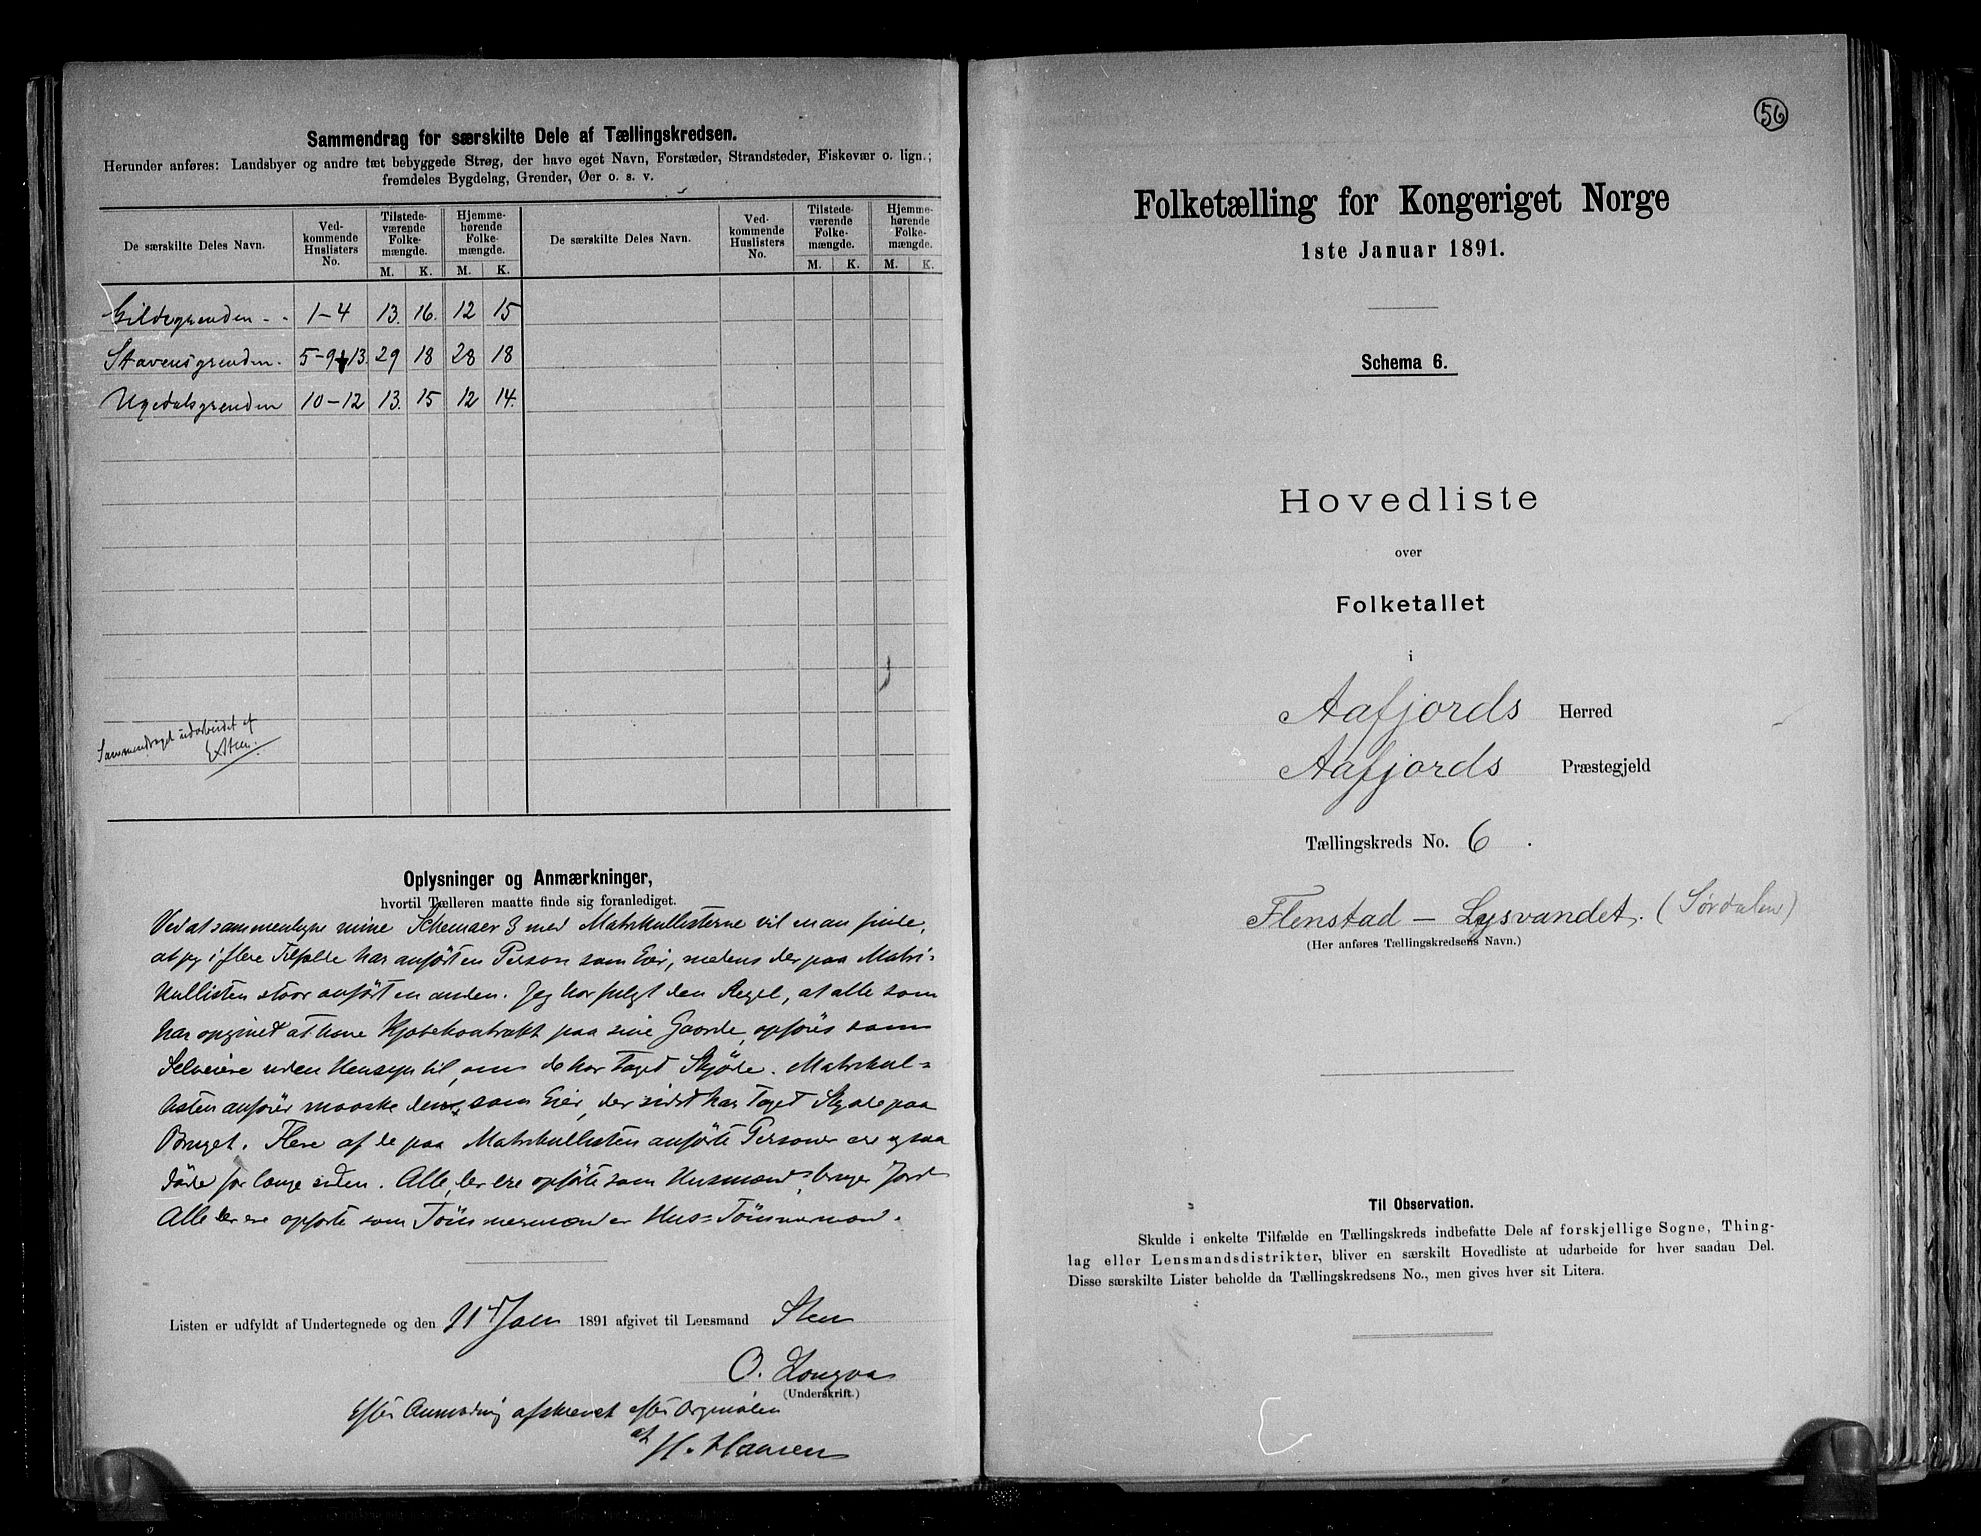 Sammendrag for særskilte Dele af Tællingskredsen.
Herunder anføres: Landsbyer og andre tæt bebyggede Strøg, der have eget Navn, Forstæder, Strandsteder, Fiskevær o. lign.;
fremdeles Bygdelag, Grender, Øer o. s. v.
De særskilte Deles Navn. Ved-kommende Huslisters No. Tilstede-værende Folke-mængde. M. K. Hjemme-hørende Folke-mængde. M. K. De særskilte Deles Navn. Ved-kommende Huslisters No. Tilstede-værende Folke-mængde. M. K. Hjemme-hørende Folke-mængde. M. K.
Gildegrenden - - 1-4 13. 16. 12 15
Stavensgrenden. 5-9+13. 29 18 28 18
Ugedalsgrenden 10-12 13. 15 12 14.
Sammendraget udarbeidet af
Oplysninger og Anmærkninger,
hvortil Tælleren maatte finde sig foranlediget.
Ved at sammenligne mine Schemaer 3 med Matrikullisterne vil man finde,
at jeg i flere Tilfælde har anført en Person som Eier, medens der paa Matri-
kullisten staar anført en anden. Jeg har fulgt den Regel, at alle som
har opgivet at have Kjøbekontrakt paa sine Gaarde, opføres som
Selveiere uden Hensyn til, om de har taget Skjøde. Matrikul=
listen anfører maaske den, som Eier, der sidst har Taget Skjøde paa
Bruget. Flere af de paa Matrikullisten anførte Personer ere ogsaa
døde for længe siden. Alle, der ere opførte som Husmænd, bruger Jord
Alle der ere opførte som Tømmermænd er Hus=Tømmermænd.
Listen er udfyldt af Undertegnede og den 11te Jan 1891 afgivet til Lensmand Sten
O. Longva
(Underskrift.)
Efter Anmodning afskrevet efter Orginalen
af H. Hansen
56
Folketælling for Kongeriget Norge
1ste Januar 1891.
Schema 6.
Hovedliste
over
Folketallet
i
Aafjords Herred
Aafjords Præstegjeld
Tællingskreds No. 6.
Flenstad - Lysvandet. (Sørdalen)
(Her anføres Tællingskredsens Navn.)
Til Observation.
Skulde i enkelte Tilfælde en Tællingskreds indbefatte Dele af forskjellige Sogne, Thing-
lag eller Lensmandsdistrikter, bliver en særskilt Hovedliste at udarbeide for hver saadan Del.
Disse særskilte Lister beholde da Tællingskredsens No., men gives hver sit Litera.